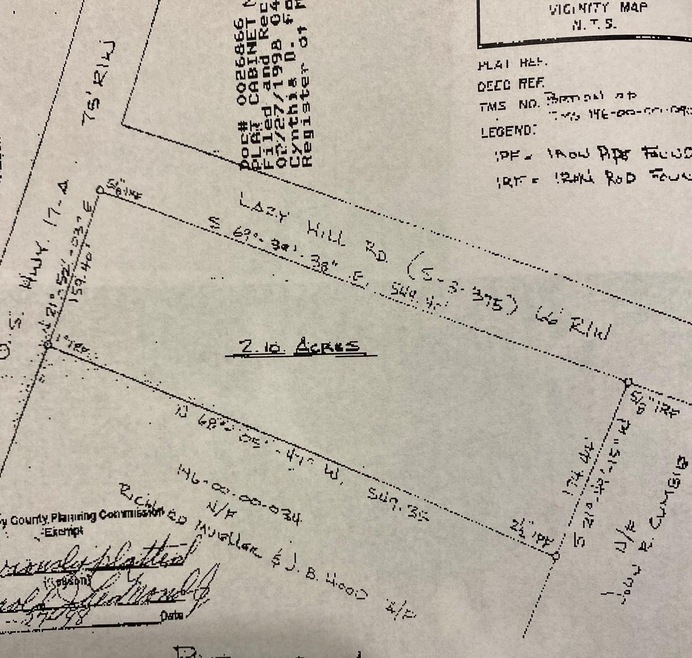 VICINITY MAP
N.T.S.
PLAT REF.
DEED REF.
TMS NO. PORTION OF
TMS 146-00-00-
LEGEND:
IPF = IRON PIPE FOUND
IRF = IRON ROD FOUN
Doc# 0026866
PLAT CABINET
Filed and Rec
02/27/1998 04
Cynthia D. Fo
Register of M
75' R/W
U.S. HWY. 17-A
5/8" IRF
LAZY HILL RD. (S-3-375) 66' R/W
S 69°-38'-38" E, 549.
N 21°-52'-03" E
159.40'
1" IPF
2.10 ACRES
5/8" IRF
N 68°-05'-47" W, 549.35
174.44'
S 21°-42'-15" W
2½" IPF
146-00-00-034
N/F
RICHARD MUELLER & J.B. HOOD
N/F
N/F
JOHN R. CUMBIE
y County Planning Commission
Exempt
viously platted
(Reason)
27-98
Date